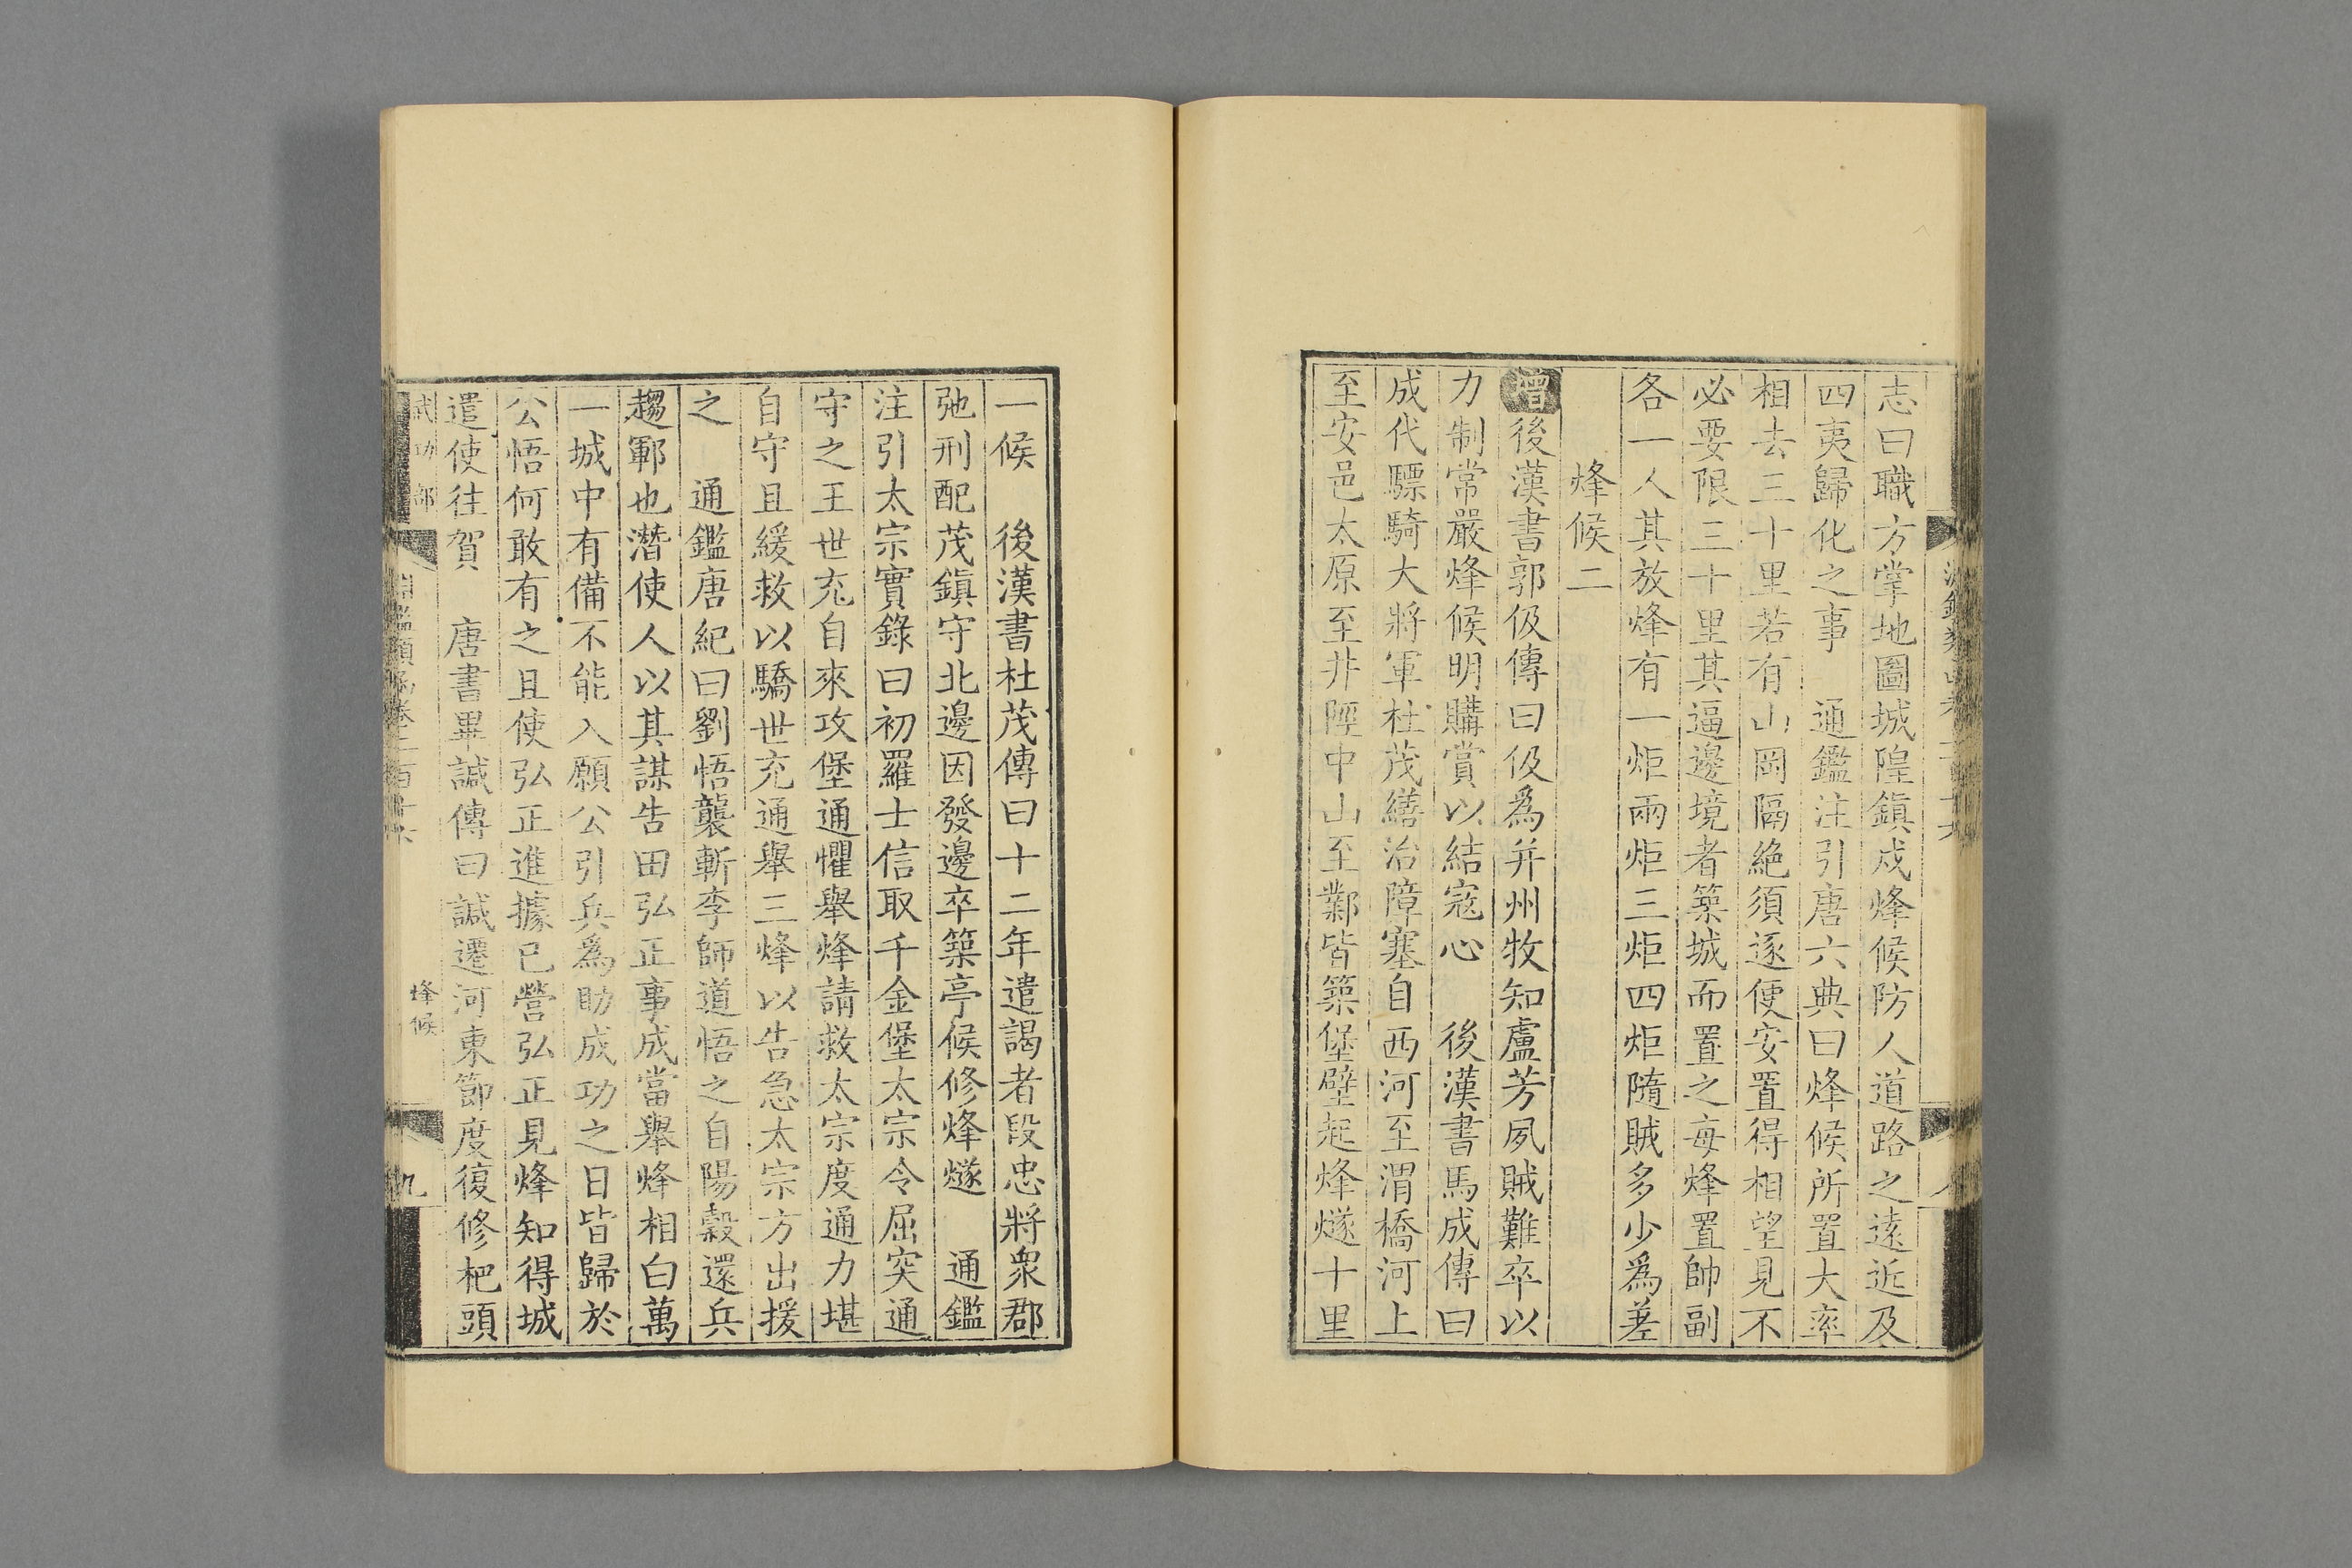 志曰職方掌地圖城隍鎮戍烽候防人道路之遠近及
四夷歸化之事　通鑑注引唐六典曰烽候所置大率
相去三十里若有山岡隔絶須逐便安置得相望見不
必要限三十里其逼邊境者築城而置之每烽置帥副
各一人其放烽有一炬兩炬三炬四炬隨賊多少爲差
烽候二
增後漢書郭伋傳曰伋爲并州牧知盧芳夙賊難卒以
力制常嚴烽候明購賞以結寇心　後漢書馬成傳曰
成代驃騎大將軍杜茂繕治障塞自西河至渭橋河上
至安邑太原至井陘中山至鄴皆築堡壁起烽燧十里
一候　後漢書杜茂傳曰十二年遣謁者段忠將衆郡
弛刑配茂鎮守北邊因發邊卒築亭候修烽燧　通鑑
注引太宗實錄曰初羅士信取千金堡太宗令屈突通
守之王世充自來攻堡通懼舉烽請救太宗度通力堪
自守且緩救以驕世充通舉三烽以告急太宗方出援
之　通鑑唐紀曰劉悟襲斬李師道悟之自陽穀還兵
趨鄆也潛使人以其謀告田弘正事成當舉烽相白萬
一城中有備不能入願公引兵爲助成功之日皆歸於
公悟何敢有之且使弘正進據已營弘正見烽知得城
遣使往賀　唐書畢諴傳曰諴遷河東節度復修杷頭
武功部
淵鑑類函卷二百十六
烽候
九